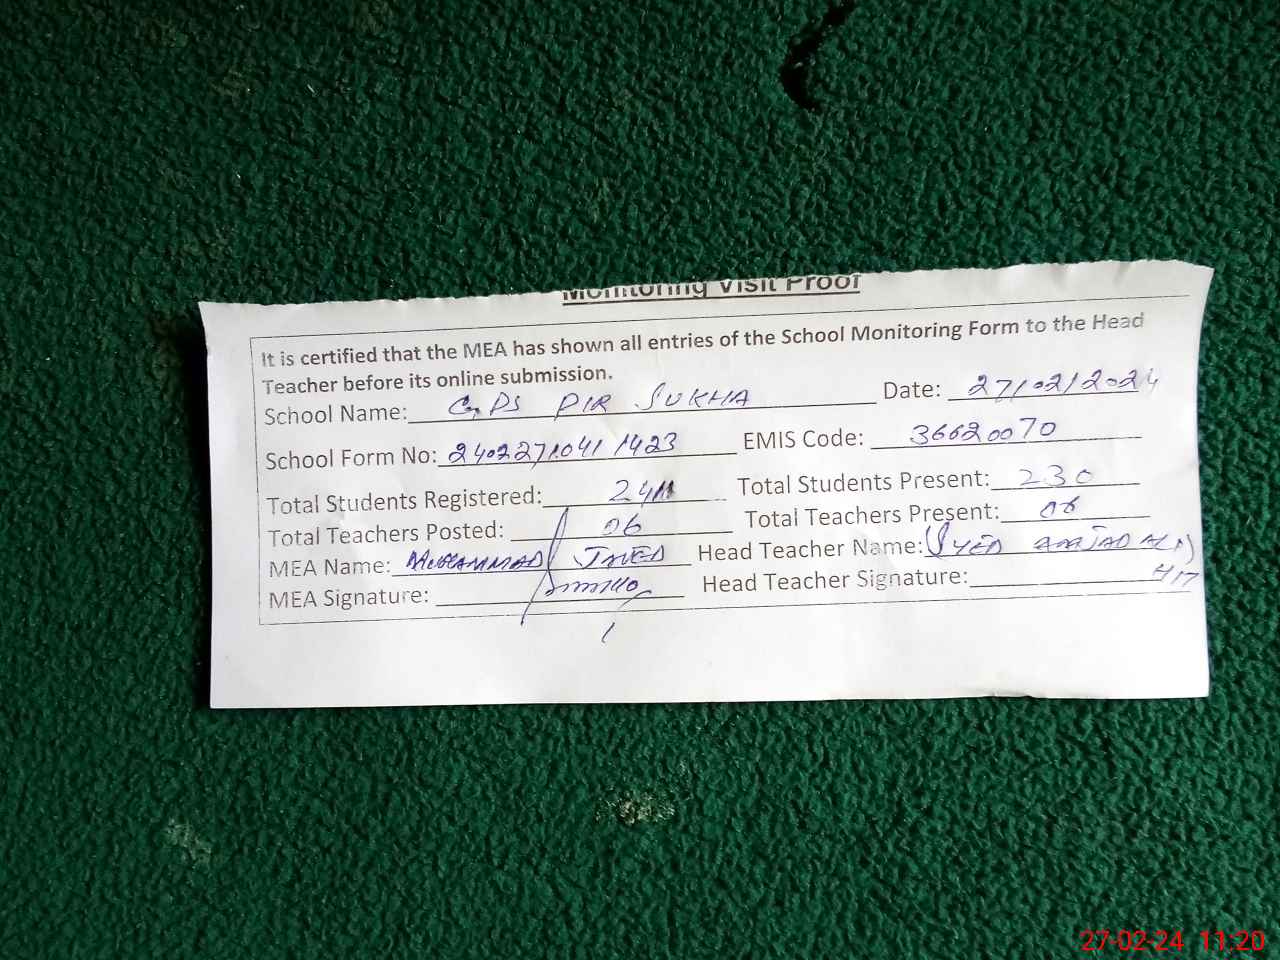 Monitoring Visit Proof
It is certified that the MEA has shown all entries of the School Monitoring Form to the Head
Teacher before its online submission.
School Name: GPS PIR SUKHA Date: 27/02/2024
School Form No: 2402271041 1423 EMIS Code: 36620070
Total Students Registered: Total Students Present: 230
Total Teachers Posted: 06 Total Teachers Present: 06
MEA Name: MUHAMMAD JAVED Head Teacher Name: SYED
MEA Signature: Head Teacher Signature:
27-02-24 11:20